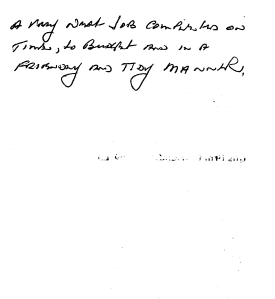 A VERY NEAT JOB COMPLETED ON
TIME, to BUDGET AND IN A
FRIENDLY AND TIDY MANNER.